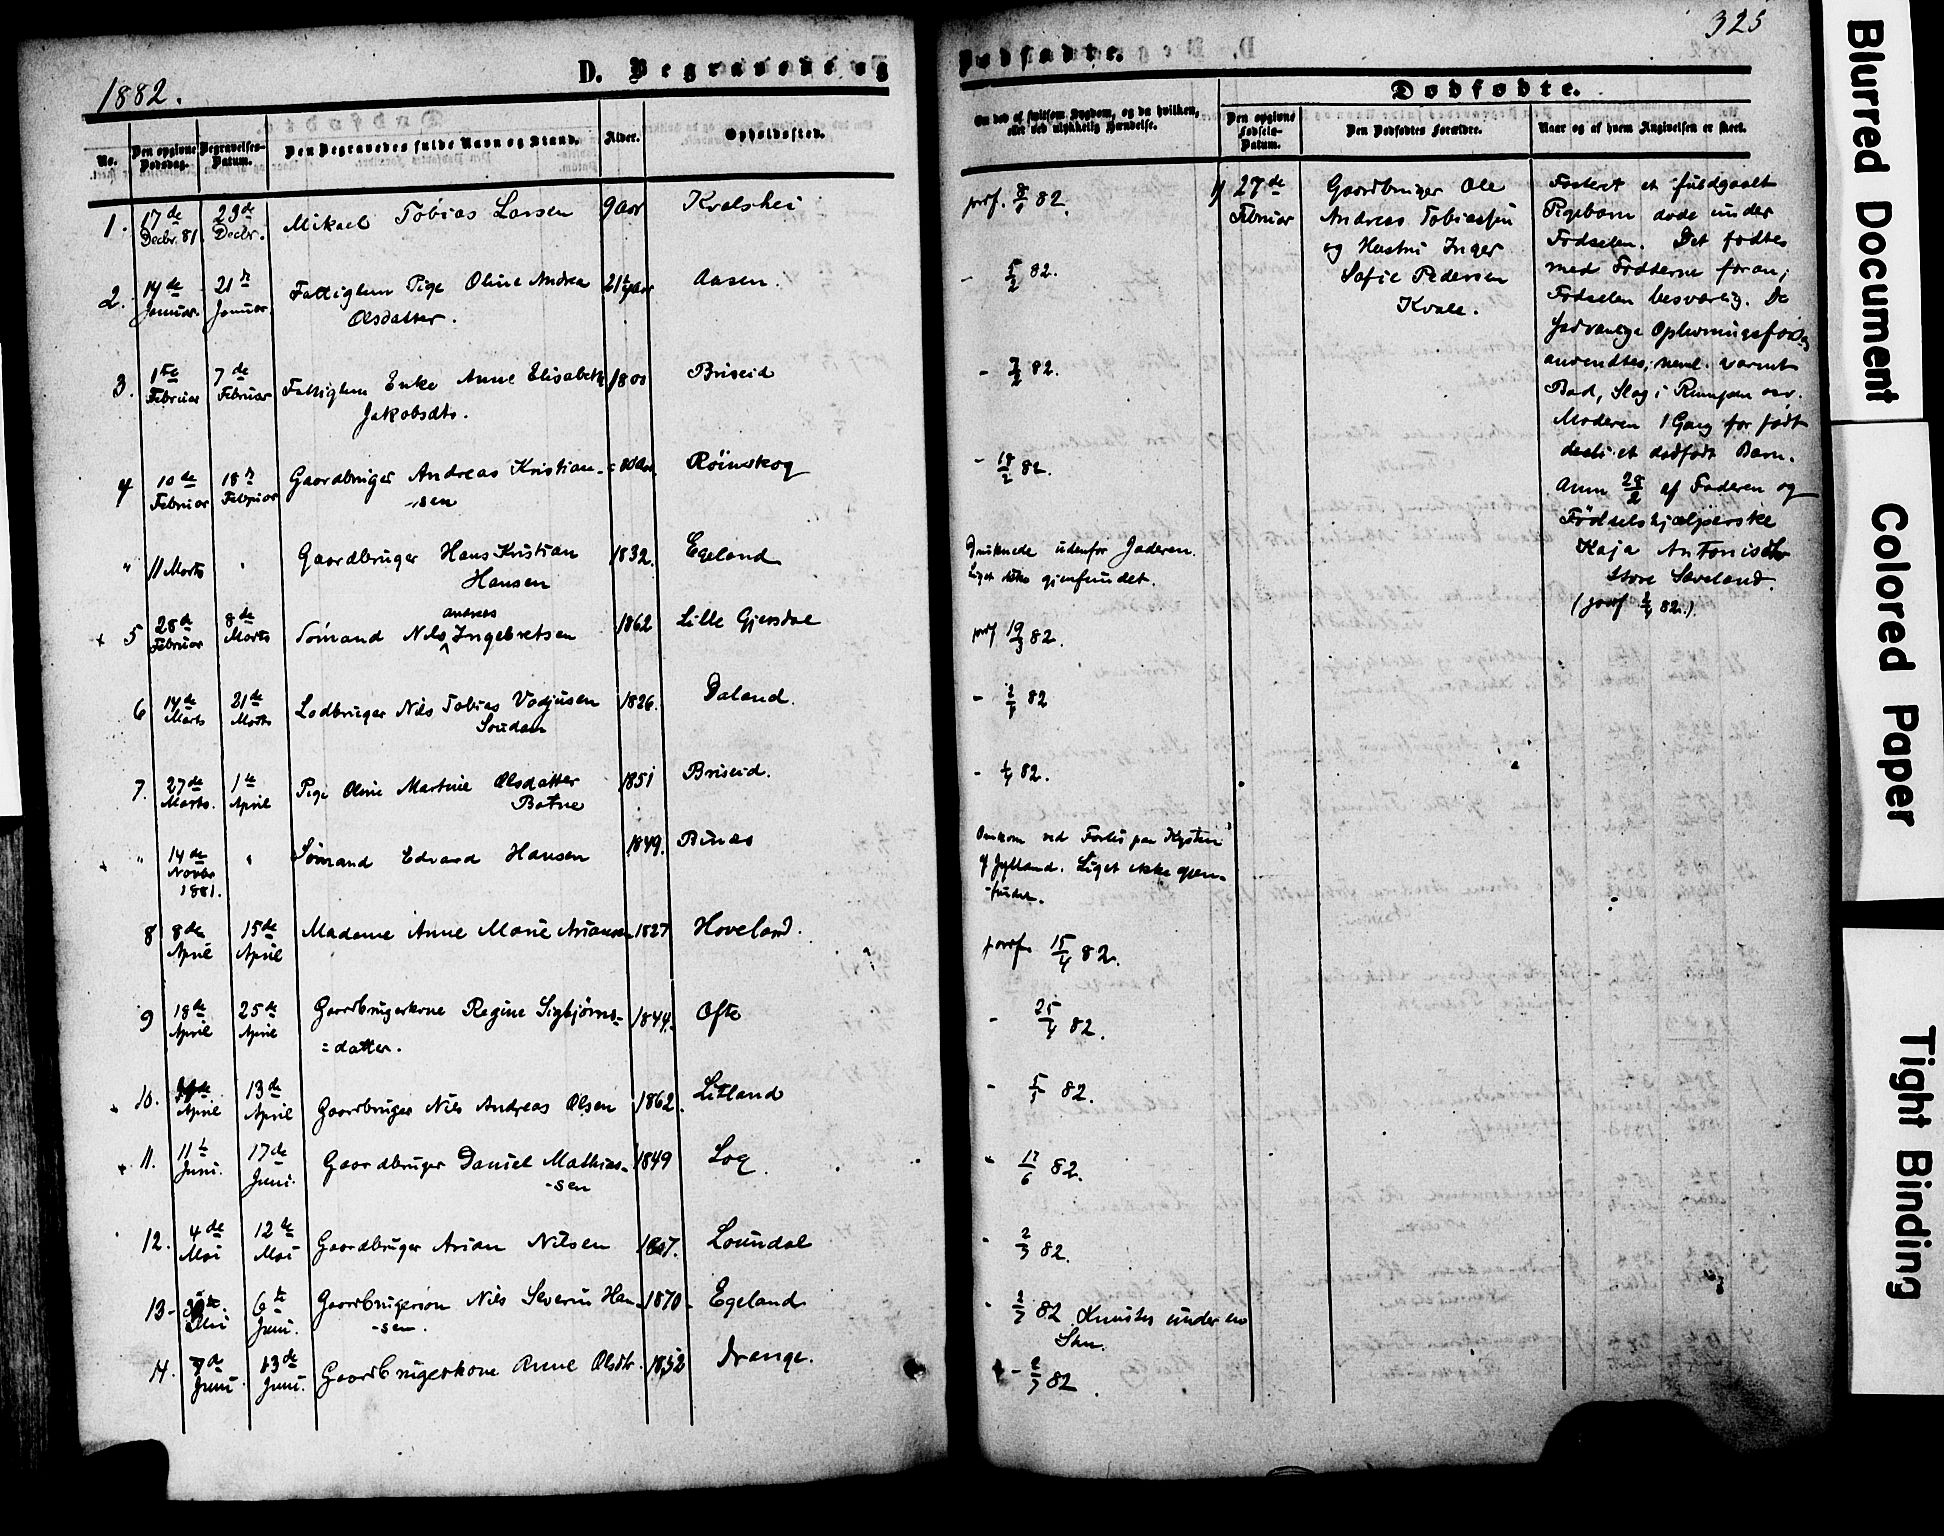 1882.
D. Begravede og
Dødfødte.
325
No.
Den opgivne Dødsdag.
Begravelses-Datum.
Den Begravedes fulde Navn og Stand.
Alder.
Opholdssted.
Om død af smitsom Sygdom, og da hvilken,
eller ved ulykkelig Hændelse.
Dødfødte.
Den opgivne Fødsels-Datum.
Den Dødfødtes Forældre.
Naar og af hvem Angivelsen er skeet.
1. 17de Decbr. 81. 23de Decbr. Mikael Tobias Larsen 9 aar Kvalshei
prof. 82.
2. 14de Januar 21de Januar Fattiglem Pige Oline Andrea
Olsdatter. Aasen.
- 5/2 82.
3. 1ste Februar 7de Februar Fattiglem Enke Anne Elisabeth
Jakobsdtr. 1800 Briseid
- 7/2 82.
4 10de Februar 18de Februar Gaardbruger Andreas Kristian-
-sen Röinskog
- 18/2 82.
" 11 Marts " Gaardbruger Hans Kristian
Hansen 1832. Egeland
Druknede udenfor Jæderen.
Liget ikke gjenfundet.
+ 5 28de Februar 8de Marts Sømand Nils Andreas Ingebretsen 1862 Lille Gjersdal
prof 19/3 82.
6 14de Marts 21de Marts Lodbruger Nils Tobias
1826. Daland.
82
7. 27de Marts. 1ste April Pige Oline Martine Olsdatter
Botne 1851 Briseid.
- 82.
" 14de Novbr 1881. " Sømand Edvard Hansen 1849. Rinæs
Omkom ved Forlis paa Kysten
af Jylland. Liget ikke gjen-
-fundet.
8 8de April 15de April Madame Anne Marie 1827 Hoveland.
prof. 15/4 82.
9 18de April 25de April Gaardbrugerkone Regine Sigbjørns-
=datter. 1844. Ofte
- 25/4 82.
10. April 13de April Gaardbruger Nils Andreas Olsen 1862. Litland
- 82.
11. 11te Juni. 17de Juni. Gaardbruger Daniel Mathias-
-sen 1849 Log
" 17/6 82.
12. 4de Mai 12te Mai Gaardbruger Arian Nilsen Loundal
- 82.
13- Mai 6te Juni. Gaardbrugersøn Nils Severin Han-
-sen. 1870 Egeland
- 82 Knustes under en
Sten.
14. 7de Juni 13de Juni. Gaardbrugerkone Anne Olsdtr. 1852 Drange.
- 82.
27de Februar
Gaardbruger Ole
Andreas Tobiassen
og Hustru Inger
Sofie Pedersen
Kvale.
Fosteret et fuldgaaet
Pigebarn døde under
Fødselen. Det fødtes
med Fødderne foran;
Fødselen besværlig. De
sædvanlige Oplivningsforsøg
anvendtes, neml. varmt
Bad, Slag i Rumpen osv.
Moderen 1 Gang før født
et dødfødt Barn.
Anm 28/2 af Faderen og
Fødselshjælperske
Kaja Antonisdtr
Store Sæveland.
(prof 82.)
Blurred Document
Colored Paper
Tight Binding